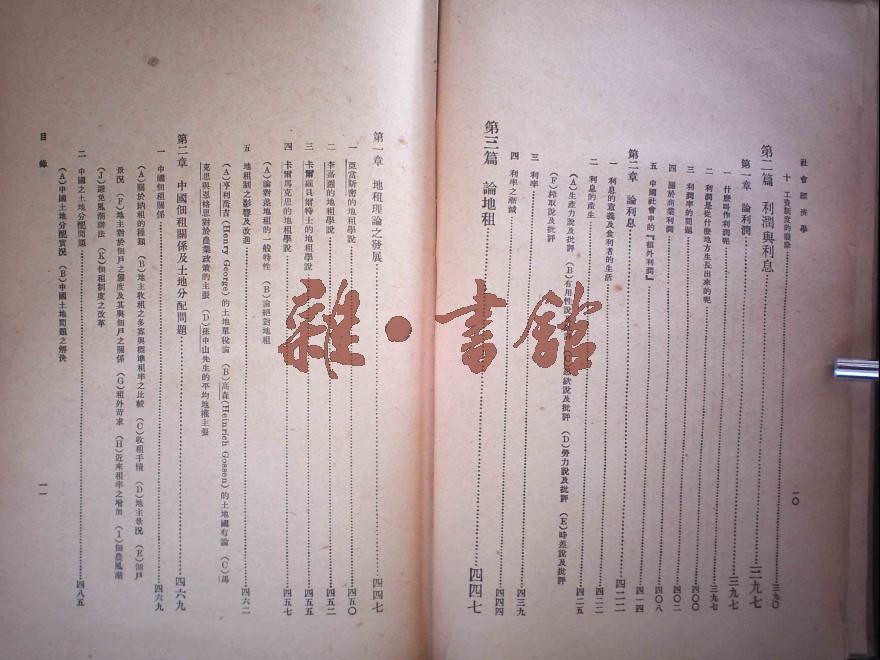 社會經濟學
一〇
十 工資制度的廢除……三九〇
第二篇 利潤與利息……三九七
第一章 論利潤……三九七
一 什麼叫作利潤呢……三九七
二 利潤是從什麼地方生長出來的呢……三九七
三 利潤率的問題……四〇〇
四 關於商業利潤……四〇二
五 中國社會中的『額外利潤』……四〇八
第二章 論利息……四一四
一 利息的意義及食利者的生活……四二二
二 利息的產生……四二五
(A)生產力說及批評 (B)有用性說及批評 說及批評 (D)勞力說及批評 (E)時差說及批評
(F)掠取說及批評
三 利率……四三九
四 利率之漸減……四四四
第三篇 論地租……四四七
第一章 地租理論之發展……四四七
一 亞當斯密的地租學說……四五〇
二 李嘉圖的地租學說……四五二
三 卡爾羅貝爾特士的地租學說……四五五
四 卡爾馬克思的地租學說……四五七
(A)論對差地租的一般特性 (B)論絕對地租
五 地租制之影響及改進……四六二
(A)亨利喬吉(Henry George)的土地單稅論 (B)高森(Heinrich Gossen)的土地國有論 (C)馬
克思與恩格思對於農業政策的主張 (D)孫中山先生的平均地權主張
第二章 中國佃租關係及土地分配問題……四六九
一 中國佃租關係……四六九
(A)關於納租的種類 (B)地主收租之多寡與標準租率之比較 (C)收租手續 (D)地主景況 (E)佃戶
景況 (F)地主對於佃戶之態度及其與佃戶之關係 (G)租外苛求 (H)近來租率之增加 (I)佃農風潮
(J)避免風潮辦法 (K)佃租制度之改革
二 中國之土地分配問題……四八五
(A)中國土地分配實況 (B)中國土地問題之解決
目錄
一一
雜·書館